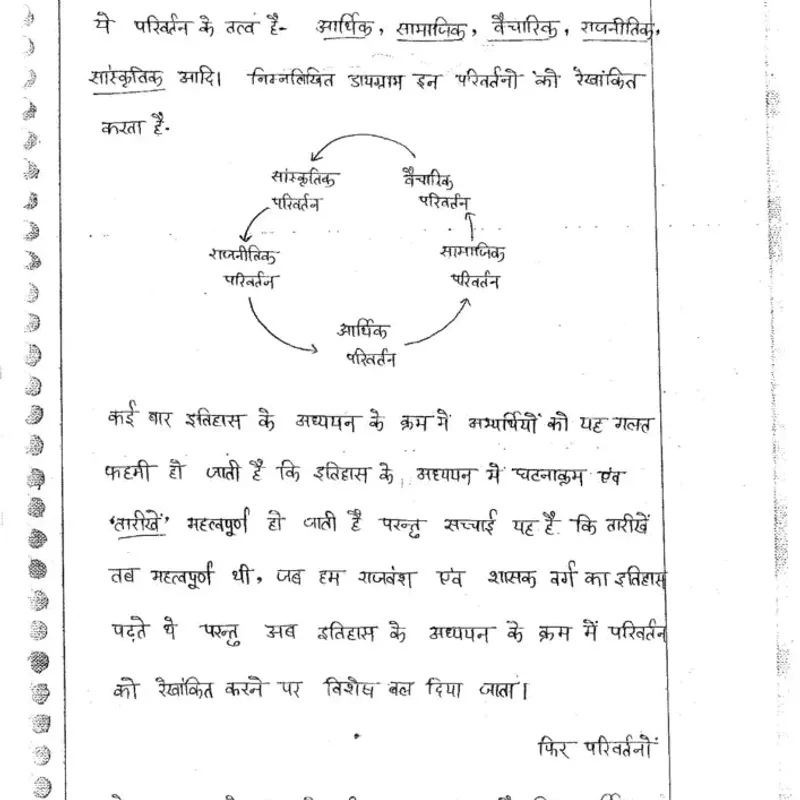 ये परिवर्तन के तत्व है- आर्थिक, सामाजिक, वैचारिक, राजनीतिक,
सांस्कृतिक आदि। निम्नलिखित डायग्राम इन परिवर्तनो को रेखांकित
करता है-
सांस्कृतिक
परिवर्तन
वैचारिक
परिवर्तन
राजनीतिक
परिवर्तन
सामाजिक
परिवर्तन
आर्थिक
परिवर्तन
कई बार इतिहास के अध्ययन के क्रम में अभ्यर्थियों को यह गलत
फहमी हो जाती है कि इतिहास के अध्ययन में घटनाक्रम एंव
'तारीखें' महत्वपूर्ण हो जाती है परन्तु सच्चाई यह है कि तारीखें
तब महत्वपूर्ण थी, जब हम राजवंश एंव शासक वर्ग का इतिहास
पढ़ते थे परन्तु अब इतिहास के अध्ययन के क्रम में परिवर्तन
को रेखांकित करने पर विशेष बल दिया जाता।
फिर परिवर्तनों